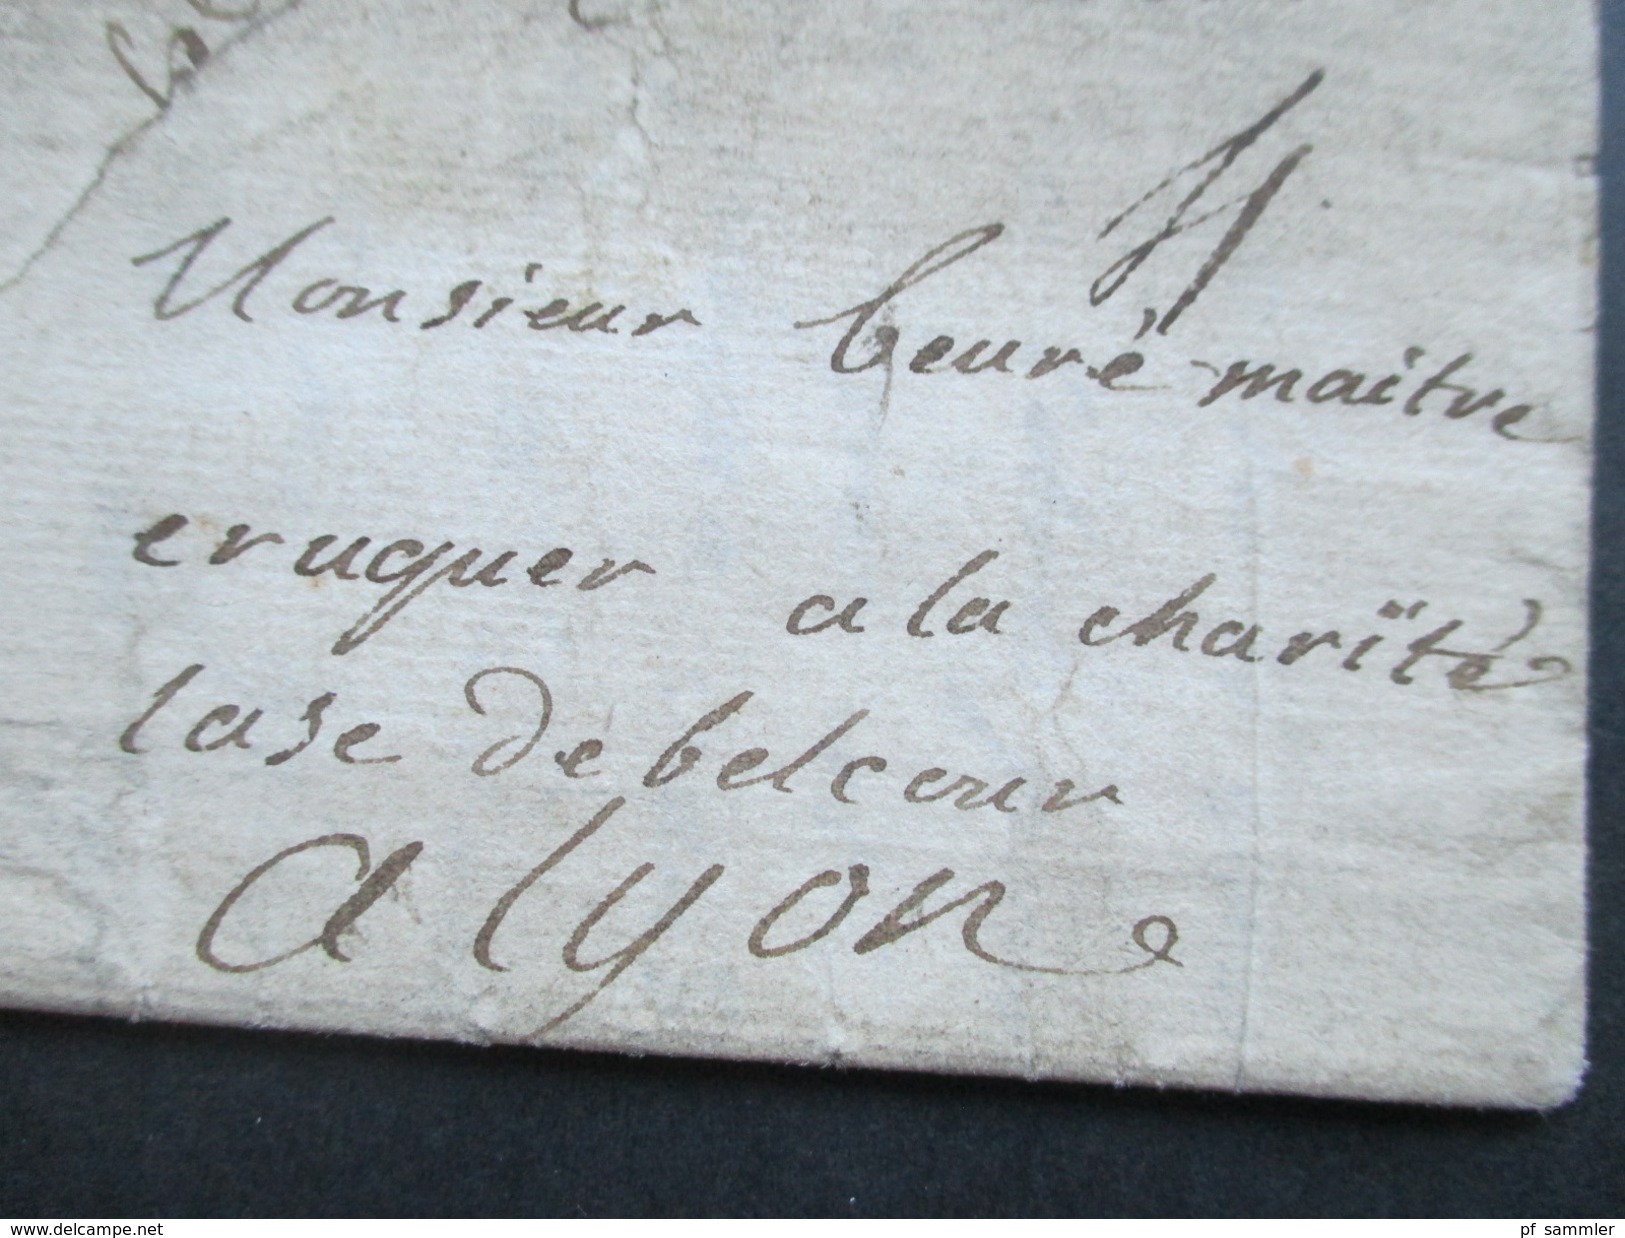 Monsieur beuré maitre
eruquer a la charïté
lase de belcour
a lyon
www.delcampe.net
pf_sammler